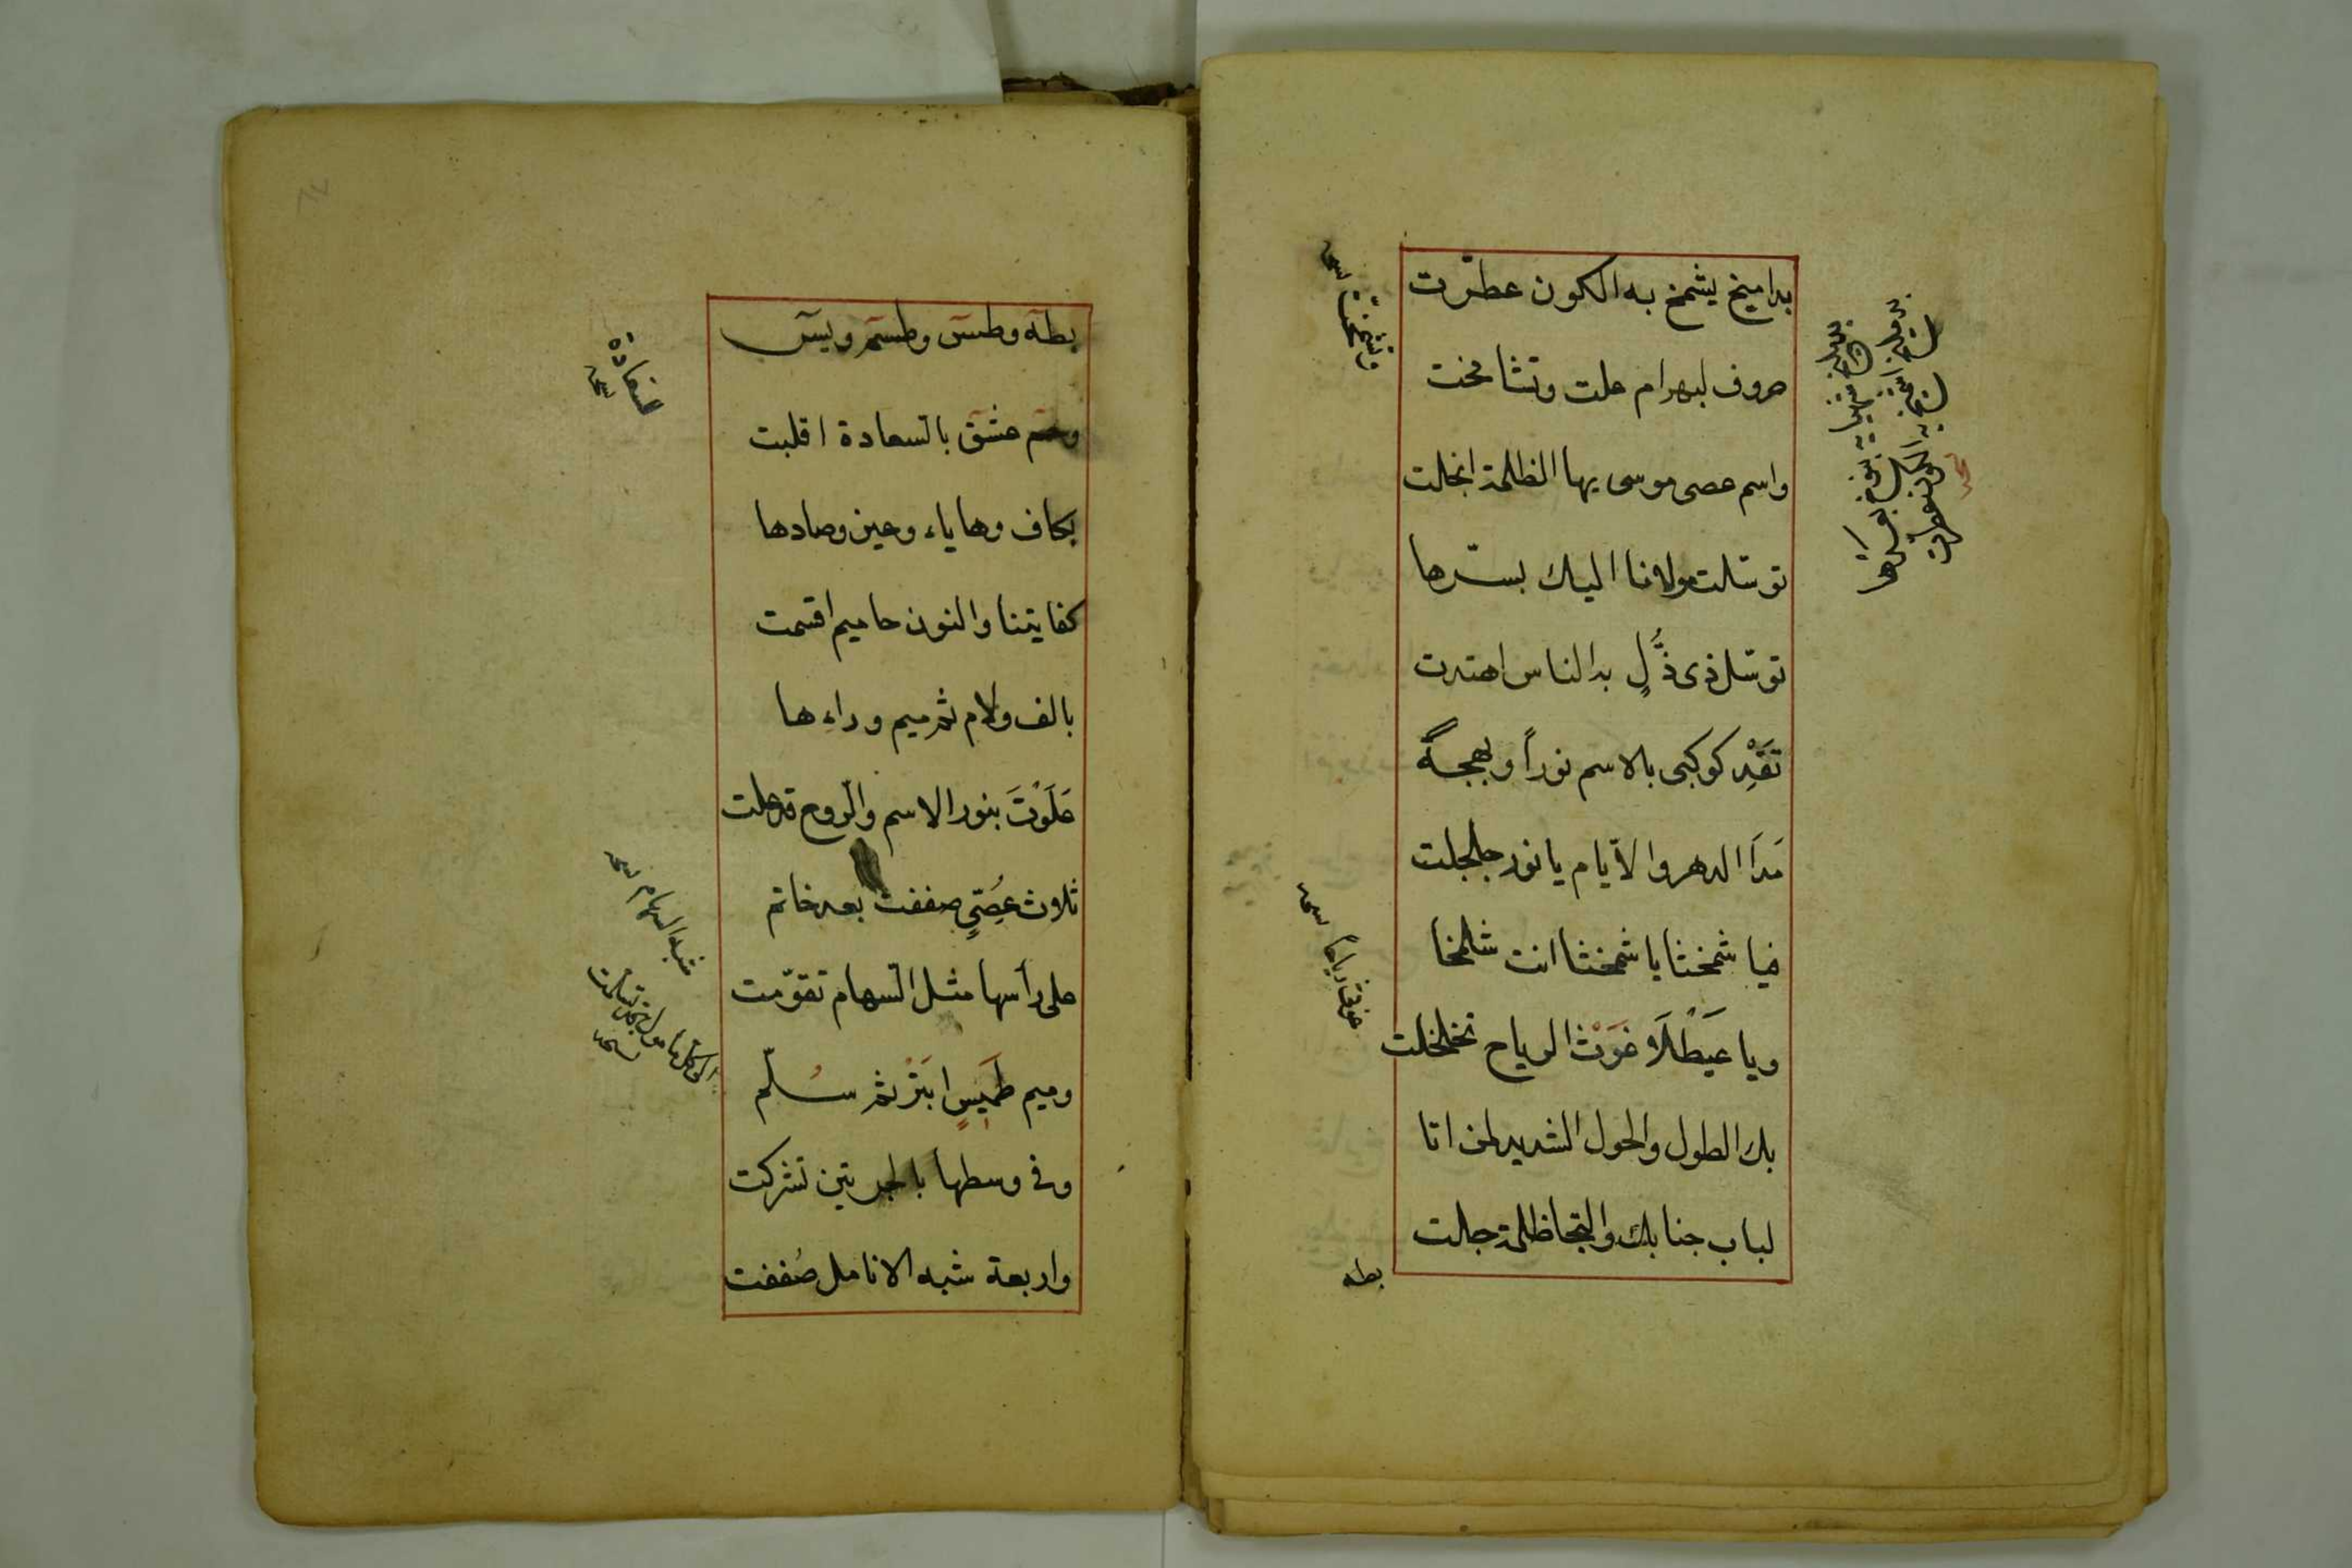 بداميخ يشمخ به الكون عطّرت
حروف لبهرام علت وتشامخت
واسم عصى موسى بها الظلمة انجلت
توسّلت مولانا اليك بسرّها
توسّل ذى ذُلٍّ بدا الناس اهتدت
تَقِدْ كوكبى بالاسم نوراً وبهجةً
مَدَا الدهر والأيام يا نور جلجلت
فيا شمخثا يا شمخثا انت شلمخا
ويا عَيْطَلَا غَوَث الرياح تخلخلت
بك الطول والحول الشديد لمن اتا
لباب جنابك والتجا ظلمة جلت
بطه
بطه وطس وطسم ويس
وحم عسق بالسعادة اقلبت
بكاف وها ياء وعين وصادها
كفايتنا والنون حاميم اقسمت
بالف ولام ثم ميم وراءها
عَلَوْتَ بنور الاسم والروح قد علت
ثلاث عِصِيٍّ صففت بعد خاتم
على رأسها مثل السهام تقوّمت
وميم طَمِيسٍ ابتر ثم سُلّم
وفى وسطها بالجرتين تشركت
واربعة شبه الانامل صُففت
شبه السهام